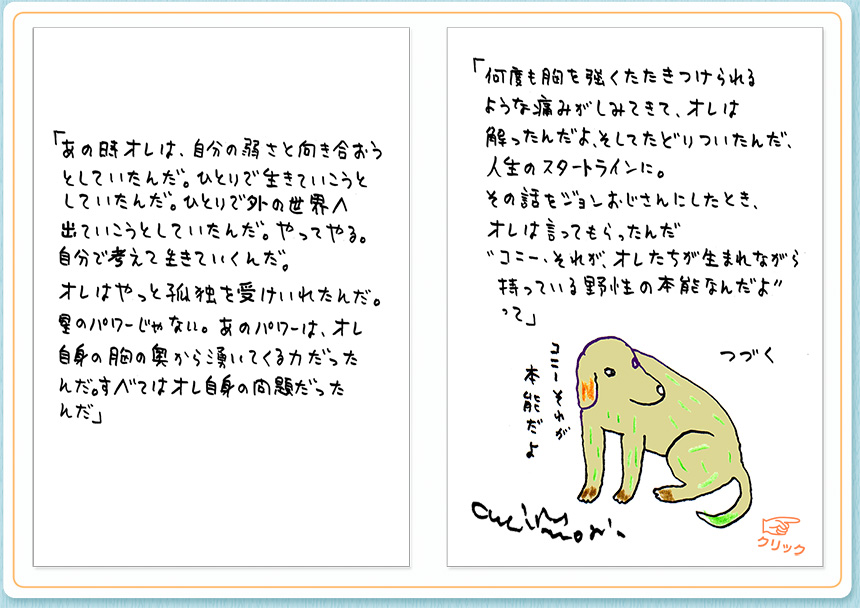 「あの時オレは、自分の弱さと向き合おう
としていたんだ。ひとりで生きていこうと
していたんだ。ひとりで外の世界へ
出ていこうとしていたんだ。やってやる。
自分で考えて生きていくんだ。
オレはやっと孤独を受けいれたんだ。
星のパワーじゃない。あのパワーは、オレ
自身の胸の奥から湧いてくる力だった
んだ。すべてはオレ自身の問題だった
んだ」
「何度も胸を強くたたきつけられる
ような痛みがしみてきて、オレは
解ったんだよ、そしてたどりついたんだ、
人生のスタートラインに。
その話をジョンおじさんにしたとき、
オレは言ってもらったんだ
“コニー、それが、オレたちが生まれながら
持っている野性の本能なんだよ”
って」
つづく
コニーそれが
本能だよ
クリック